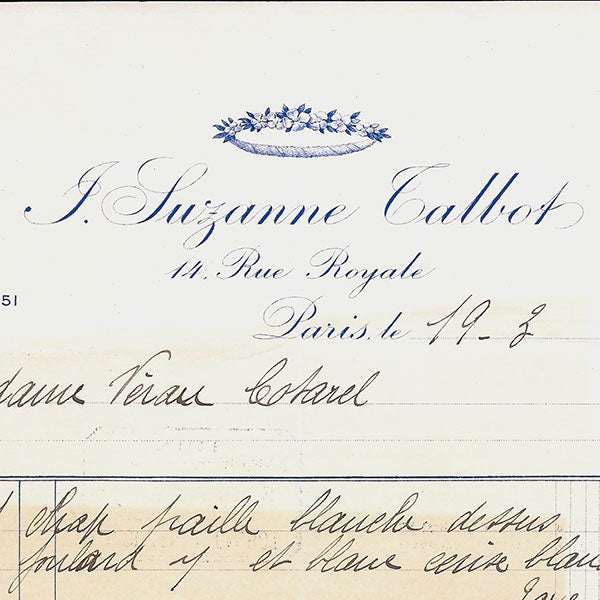 J. Suzanne Talbot
14, Rue Royale
51
Paris, le 19 - 3
dame Cotarel
chap paille blanche dessus
foulard et blanc cerise blanc